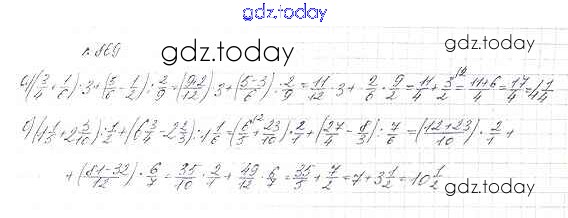 gdz.today
gdz.today
n. 869
а) (3/4 + 1/6) · 3 + (5/6 - 1/2) : 2/9 = (9+2/12) · 3 + (5-3/6) : 2/9 = 11/12 · 3 + 2/6 · 9/2 = 11/4 + 3/2 = 11+6/4 = 17/4 = 4 1/4
б) (1 1/5 + 2 3/10) : 1/2 + (6 3/4 - 2 2/3) : 1 1/6 = (6/5 + 23/10) · 2/1 + (27/4 - 8/3) · 6/7 = (12+23/10) · 2/1 +
+ (81-32/12) · 6/7 = 35/10 · 2/1 + 49/12 · 6/7 = 35/5 + 7/2 = 7 + 3 1/2 = 10 1/2
gdz.today
gdz.today